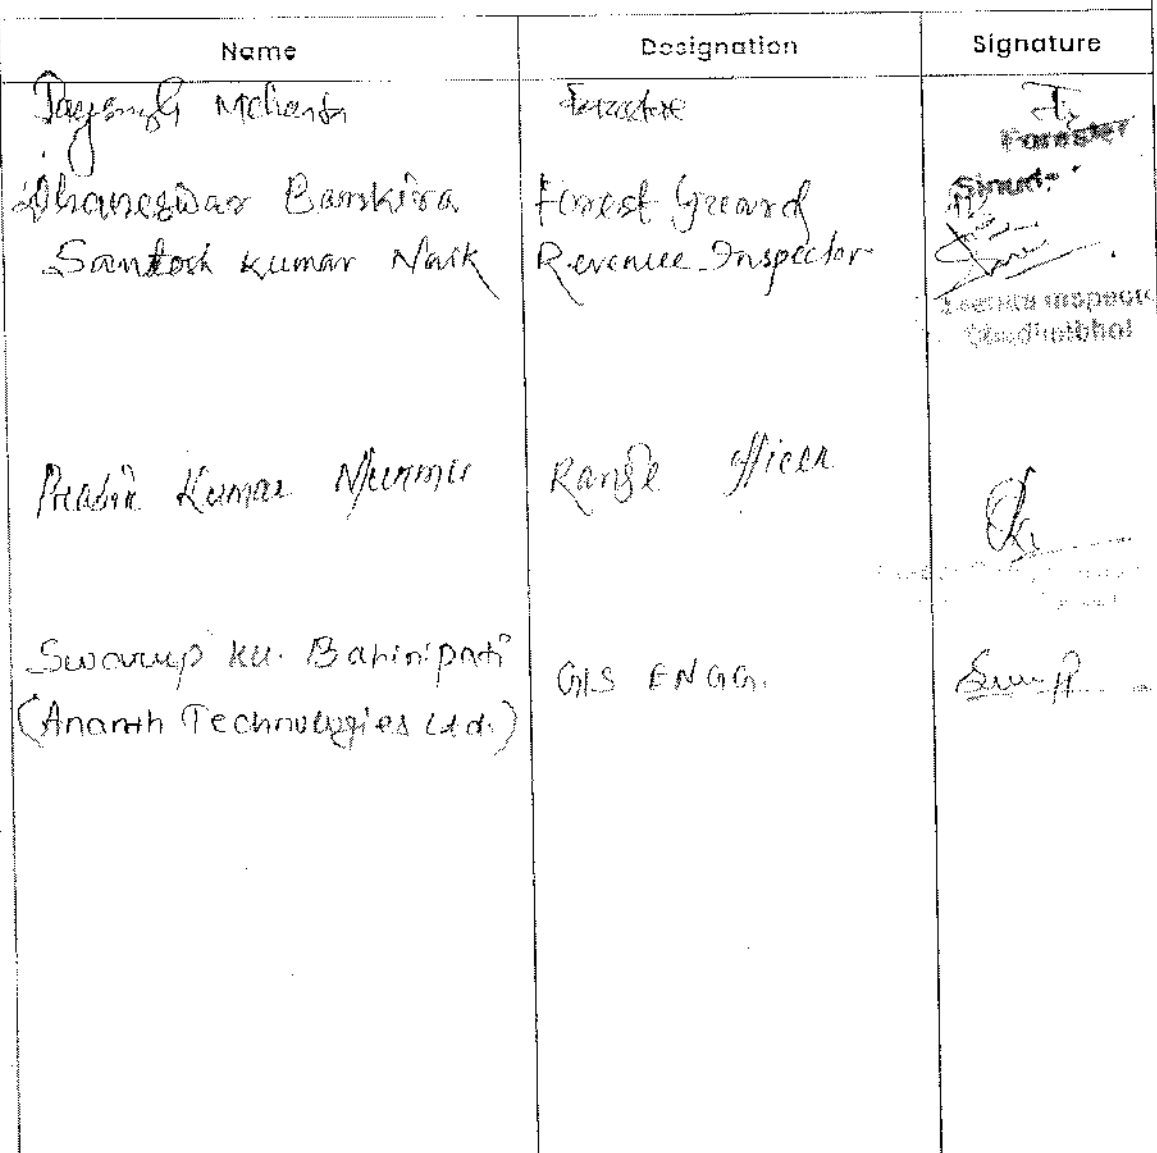 Name Designation Signature
Mohanta
Forester
Dhaneswar Bankira Forest Guard
Santosh Kumar Naik Revenue Inspector
Inspector
Prabir Kumar Murmu Range Officer
Swarup ku. Bahinipati GIS ENGG.
(Ananth Technologies Ltd.)